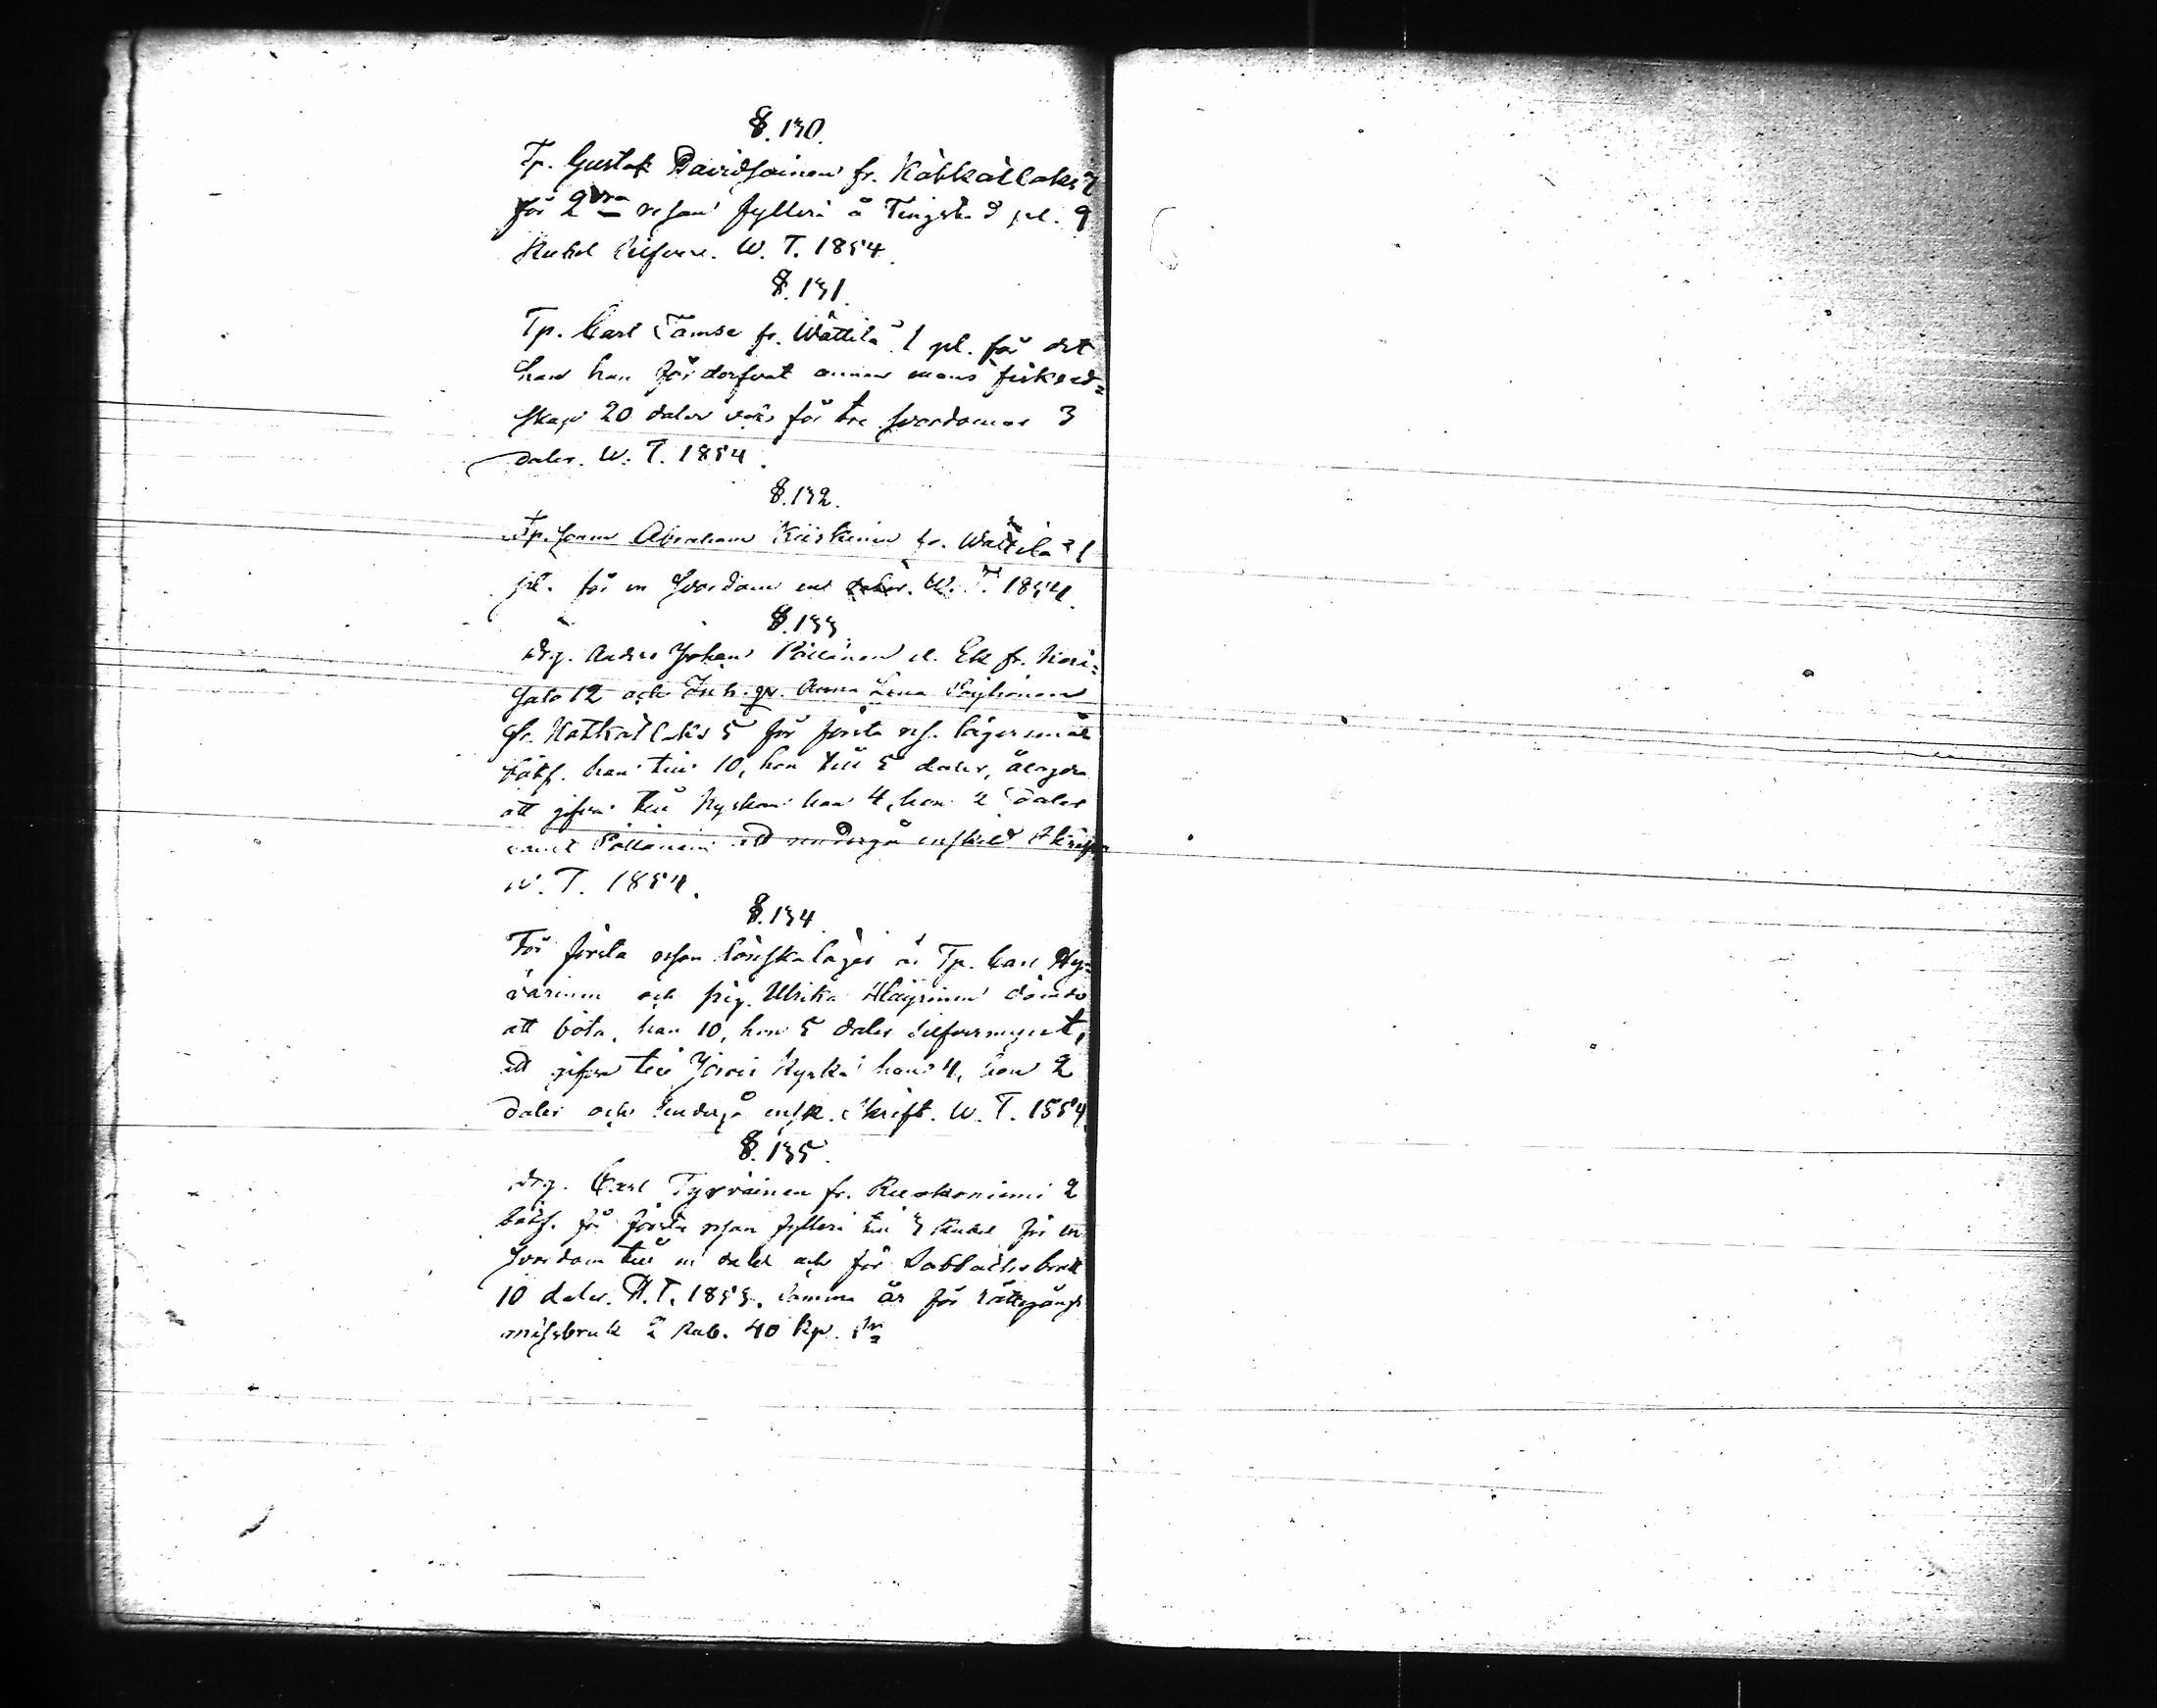 §. 130.
Tp. Gustaf Davidsainen fr. Kotkatlaks 7
för 2dra resan fylleri å Tingsted pl. 9
Rubel Silfver. W. T. 1854.
§. 131.
Tp. Carl Tamse fr. Wättilä 1 pl. för det
han förderfvat annan mans fisked=
skap 20 daler för tre svordomar 3
daler. W. T. 1854.
§. 132.
Tp. Abraham Kiiskinen fr. Wättilä 1
pl. för en Svordom en daler. W. T. 1854.
§. 133.
Drg. Anders Johan Pöllänen el. Ek fr. Kosi=
salo 12 och Inh. Anna Lena
fr. Kotkatlaks 5 för första res. lägersmål
sakf. han till 10, hon till 5 daler, ålagda
att gifva till Kyrkan han 4, hon 2 daler
samt Pöllänen att undergå enskild Skrift
W. T. 1854.
§. 134.
För första resan lönskaläge är Tp. Carl Hy=
värinen och pig. Ulrika Häyrinen dömde
att böta, han 10, hon 5 daler Silfvermynt,
att gifva till Jorois Kyrka han 4, hon 2
daler och undergå ensk. Skrift. W. T. 1854
§. 135.
Drg. Carl Tyrväinen fr. Ruokoniemi 2
sakf. för första resan fylleri till 3 Rubel för en
svordom till en daler och för Sabbathsbrott
10 daler. H. T. 1853. samma år för rättegångs
missbruk 2 Rub. 40 Kp. Sr